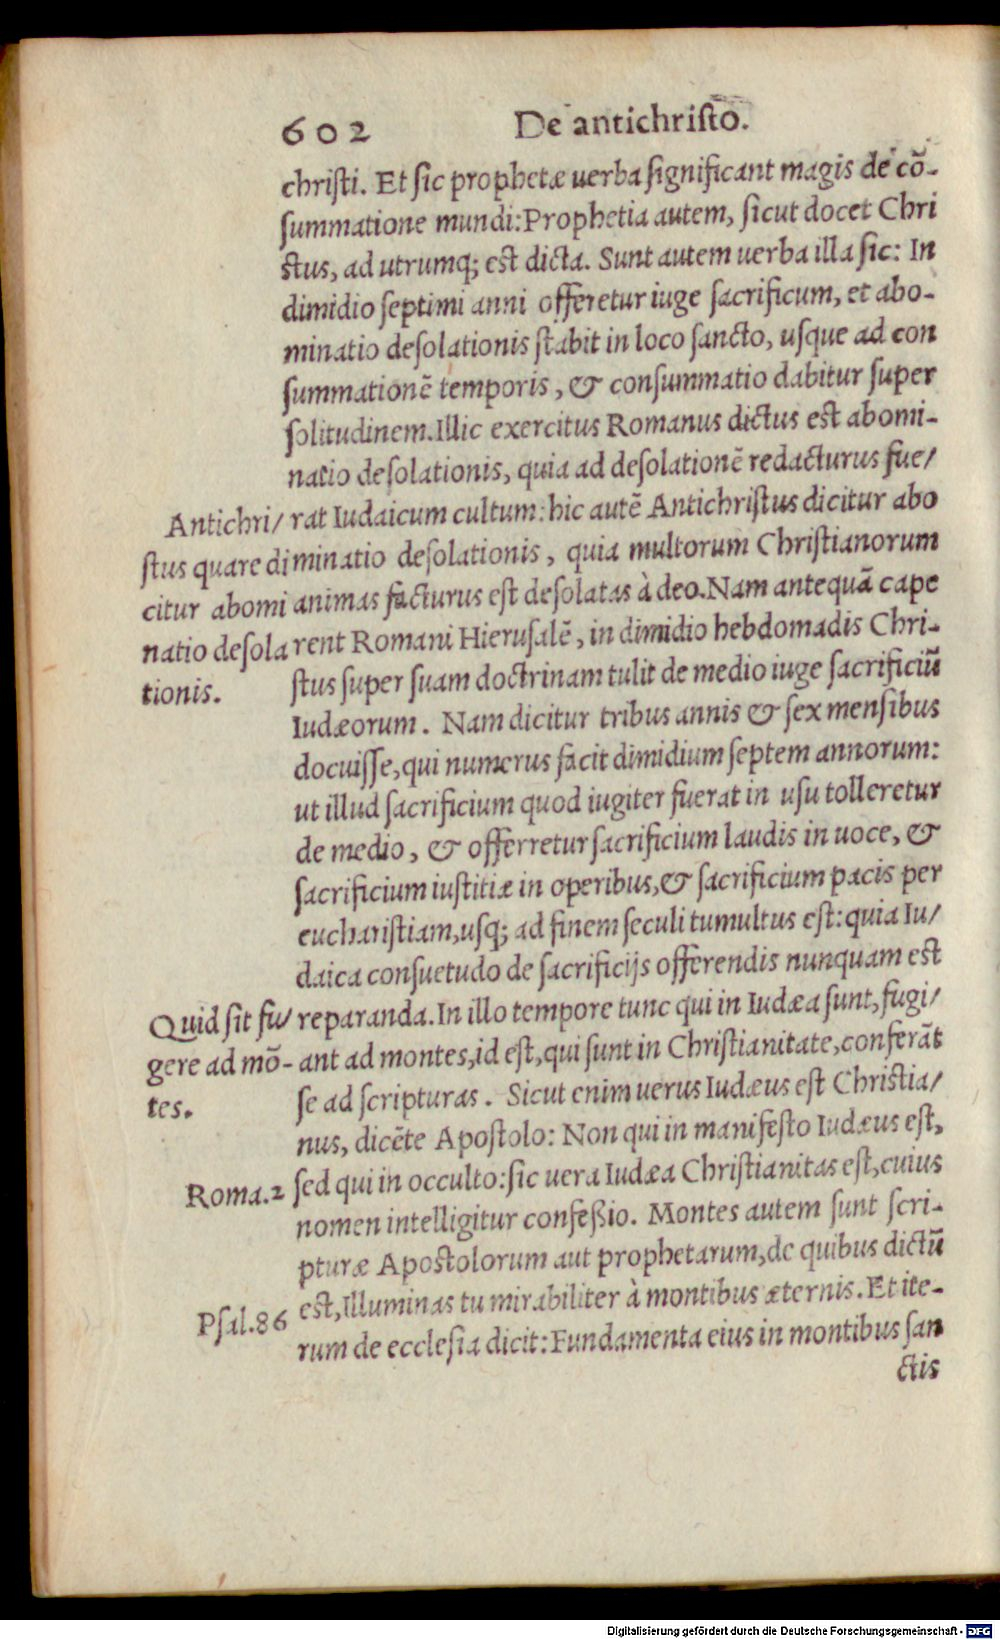 602 De antichristo.
christi. Et sic prophetæ uerba significant magis de cõ-
summatione mundi: Prophetia autem, sicut docet Chri
stus, ad utrumq; est dicta. Sunt autem uerba illa sic: In
dimidio septimi anni offeretur iuge sacrificum, et abo-
minatio desolationis stabit in loco sancto, usque ad con
summationẽ temporis, & consummatio dabitur super
solitudinem. Illic exercitus Romanus dictus est abomi-
natio desolationis, quia ad desolationẽ redacturus fue/
rat Iudaicum cultum: hic autẽ Antichristus dicitur abo
minatio desolationis, quia multorum Christianorum
animas facturus est desolatas à deo. Nam antequã cape
rent Romani Hierusalẽ, in dimidio hebdomadis Chri-
stus super suam doctrinam tulit de medio iuge sacrificiũ
Iudæorum. Nam dicitur tribus annis & sex mensibus
docuisse, qui numerus facit dimidium septem annorum:
ut illud sacrificium quod iugiter fuerat in usu tolleretur
de medio, & offerretur sacrificium laudis in uoce, &
sacrificium iustitiæ in operibus, & sacrificium pacis per
eucharistiam, usq; ad finem seculi tumultus est: quia Iu/
daica consuetudo de sacrificijs offerendis nunquam est
reparanda. In illo tempore tunc qui in Iudæa sunt, fugi/
ant ad montes, id est, qui sunt in Christianitate, conferãt
se ad scripturas. Sicut enim uerus Iudæus est Christia/
nus, dicẽte Apostolo: Non qui in manifesto Iudæus est,
sed qui in occulto: sic uera Iudæa Christianitas est, cuius
nomen intelligitur confeßio. Montes autem sunt scri-
pturæ Apostolorum aut prophetarum, de quibus dictũ
est, Illuminas tu mirabiliter à montibus æternis. Et ite-
rum de ecclesia dicit: Fundamenta eius in montibus san
ctis
Antichri/
stus quare di
citur abomi
natio desola
tionis.
Quid sit fu/
gere ad mõ-
tes.
Roma.2
Psal.86
Digitalisierung gefördert durch die Deutsche Forschungsgemeinschaft - DFG